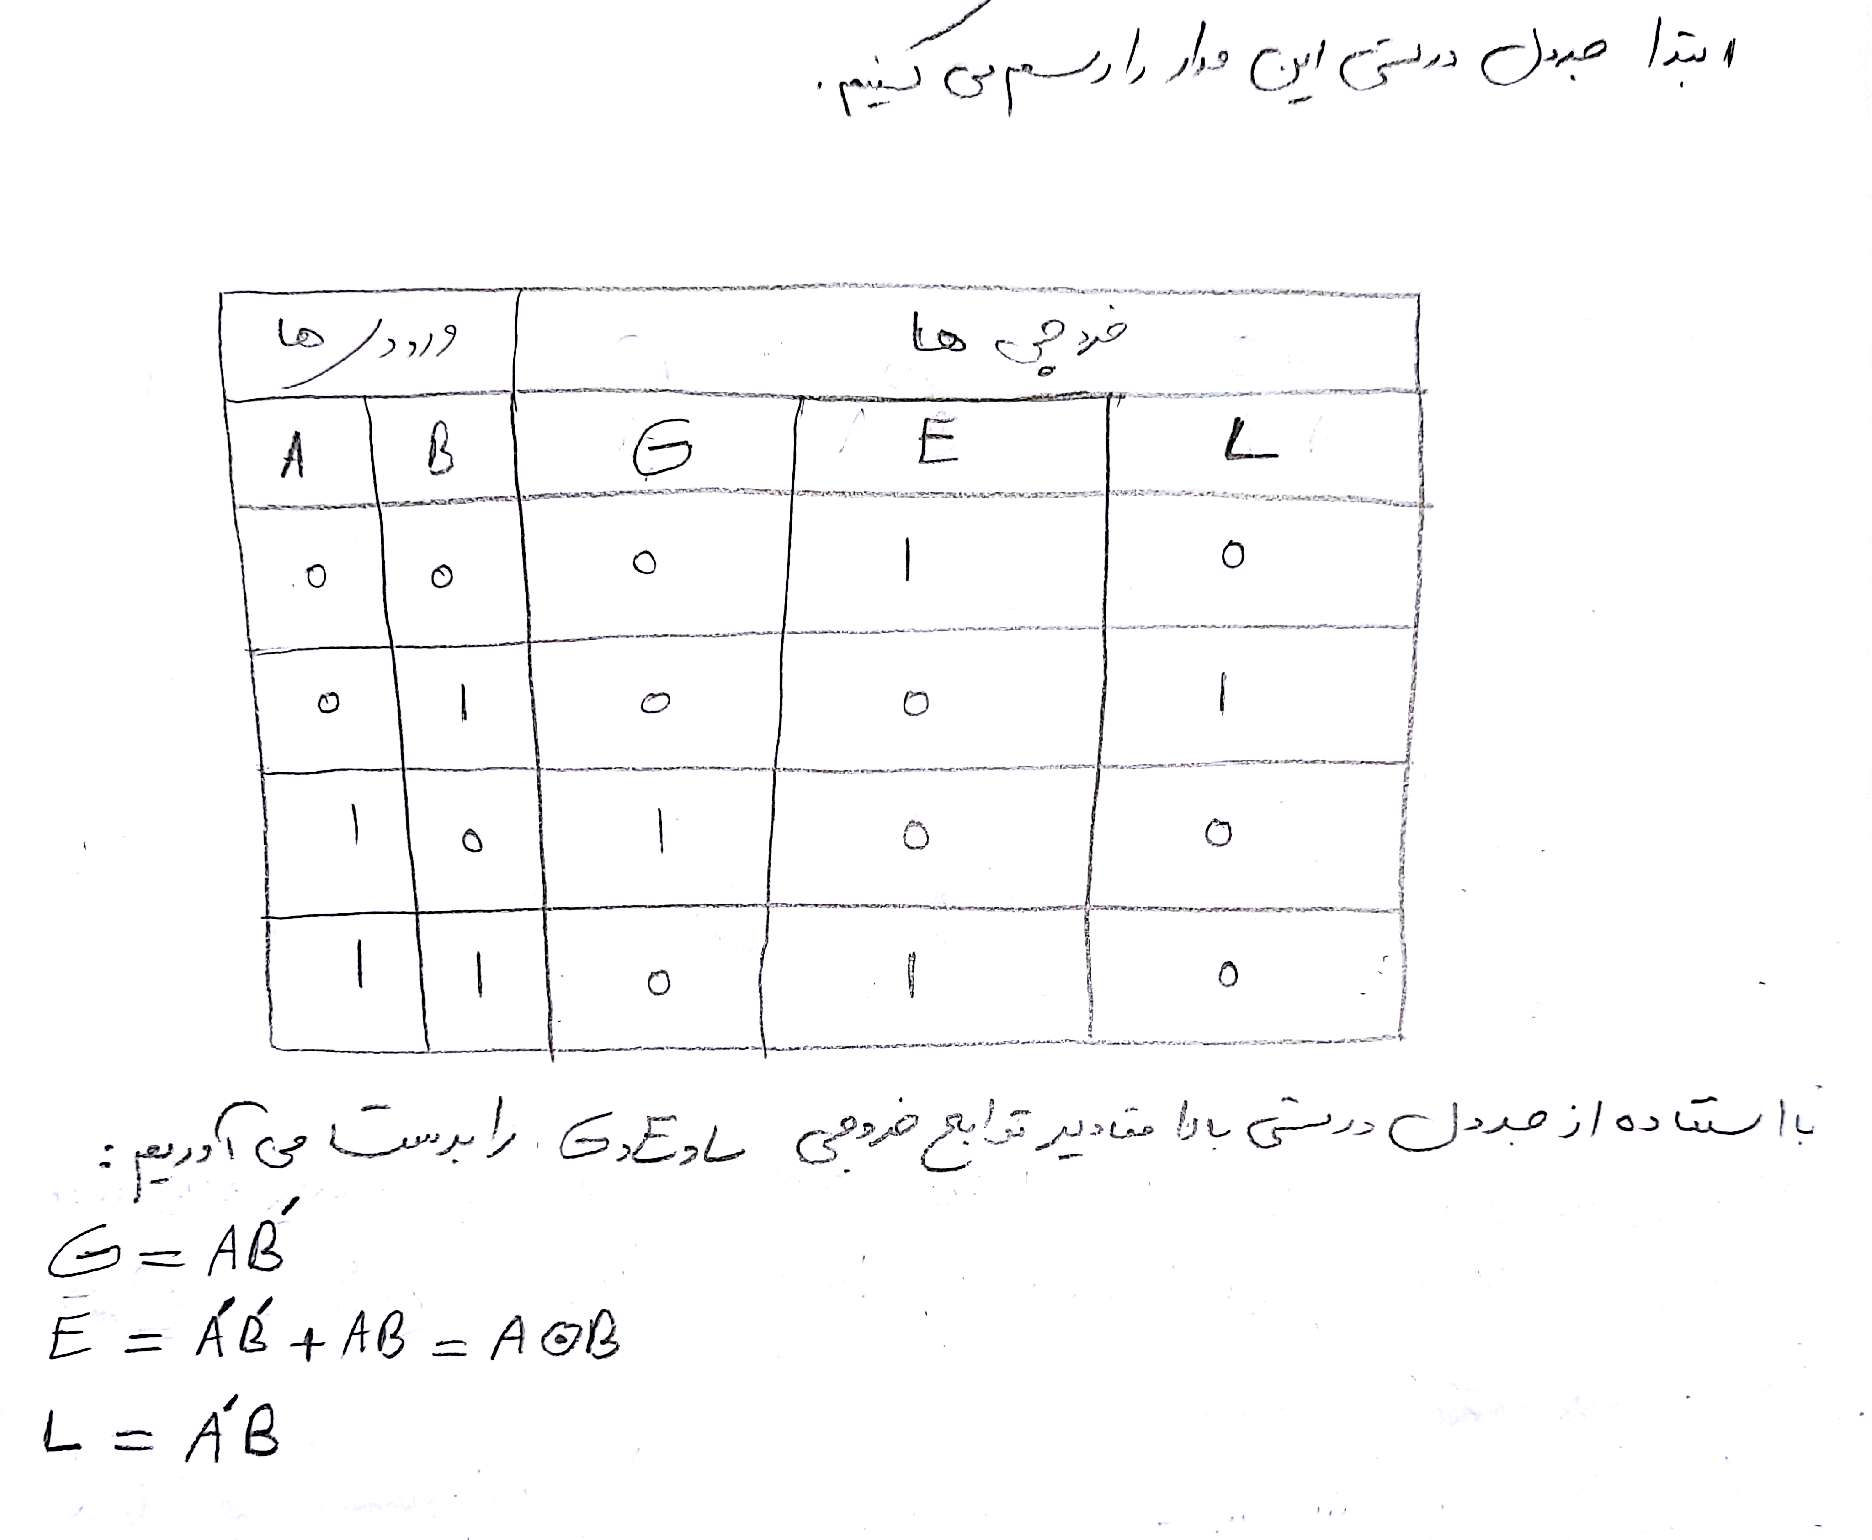 ابتدا جدول درستی این مدار را رسم می کنیم.
ورودی ها خروجی ها
A B G E L
0 0 0 1 0
0 1 0 0 1
1 0 1 0 0
1 1 0 1 0
با استفاده از جدول درستی بالا مقادیر توابع خروجی L و E و G را بدست می آوریم:
G = AB'
E = A'B' + AB = A⊙B
L = A'B